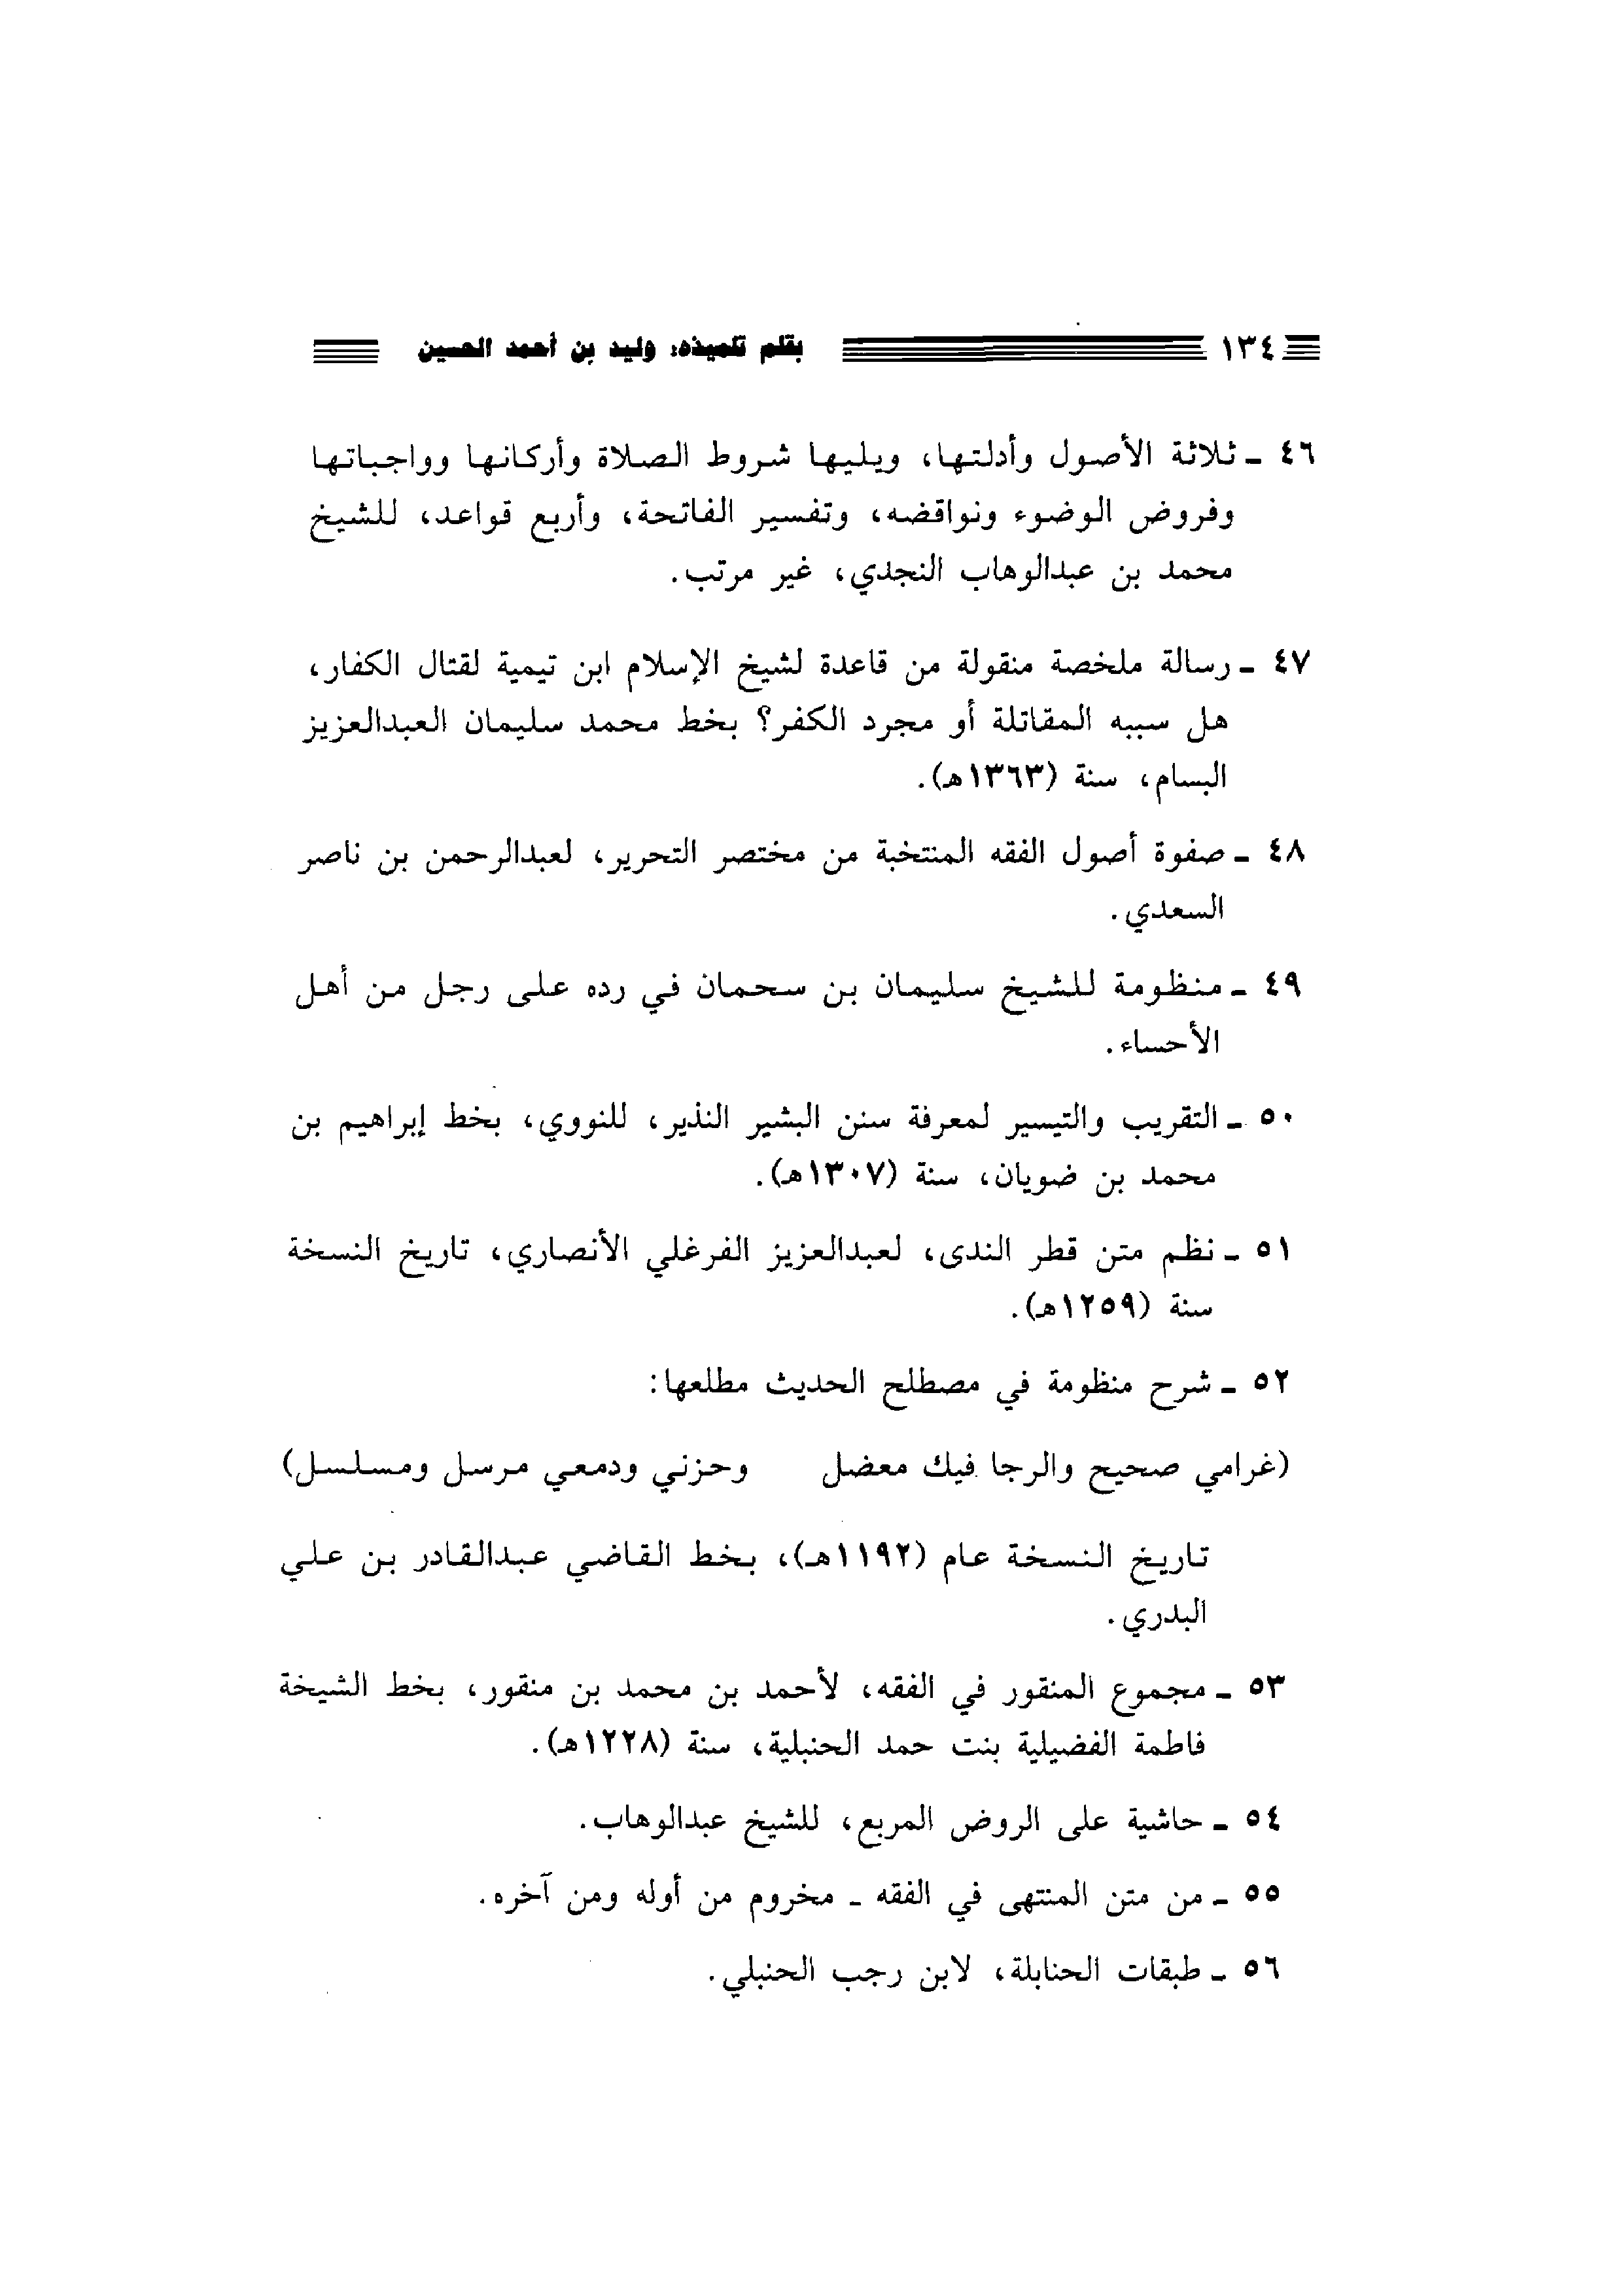 ١٣٤ بقلم تلميذه: وليد بن أحمد الحسين
٤٦ ـ ثلاثة الأصول وأدلتها، ويليها شروط الصلاة وأركانها وواجباتها
وفروض الوضوء ونواقضه، وتفسير الفاتحة، وأربع قواعد، للشيخ
محمد بن عبدالوهاب النجدي، غير مرتب.
٤٧ ـ رسالة ملخصة منقولة من قاعدة لشيخ الإسلام ابن تيمية لقتال الكفار،
هل سببه المقاتلة أو مجرد الكفر؟ بخط محمد سليمان العبدالعزيز
البسام، سنة (١٣٦٣هـ).
٤٨ ـ صفوة أصول الفقه المنتخبة من مختصر التحرير، لعبدالرحمن بن ناصر
السعدي.
٤٩ ـ منظومة للشيخ سليمان بن سحمان في رده على رجل من أهل
الأحساء.
٥٠ ـ التقريب والتيسير لمعرفة سنن البشير النذير، للنووي، بخط إبراهيم بن
محمد بن ضويان، سنة (١٣٠٧هـ).
٥١ ـ نظم متن قطر الندى، لعبدالعزيز الفرغلي الأنصاري، تاريخ النسخة
سنة (١٢٥٩هـ).
٥٢ ـ شرح منظومة في مصطلح الحديث مطلعها:
(غرامي صحيح والرجا فيك معضل وحزني ودمعي مرسل ومسلسل)
تاريخ النسخة عام (١١٩٢هـ)، بخط القاضي عبدالقادر بن علي
البدري.
٥٣ ـ مجموع المنقور في الفقه، لأحمد بن محمد بن منقور، بخط الشيخة
فاطمة الفضيلية بنت حمد الحنبلية، سنة (١٢٢٨هـ).
٥٤ ـ حاشية على الروض المربع، للشيخ عبدالوهاب.
٥٥ ـ من متن المنتهى في الفقه ـ مخروم من أوله ومن آخره.
٥٦ ـ طبقات الحنابلة، لابن رجب الحنبلي.